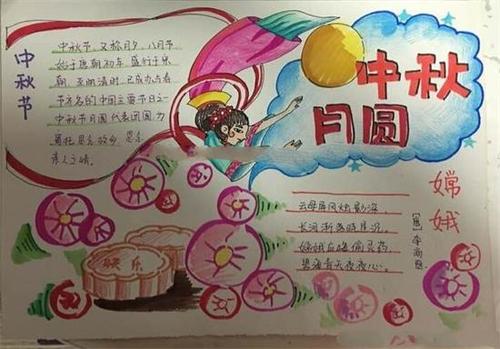 中秋节
中秋节,又称月夕、八月节
始于唐朝初年,盛行于宋
朝,至明清时,已成为与春
节齐名的中国主要节日之一
中秋节月圆代表团圆为
寄托思念故乡,思念
亲人之情。
中秋
月圆
嫦娥
[唐]李商隐
云母屏风烛影深,
长河渐落晓星沉。
嫦娥应悔偷灵药,
碧海青天夜夜心。
快乐